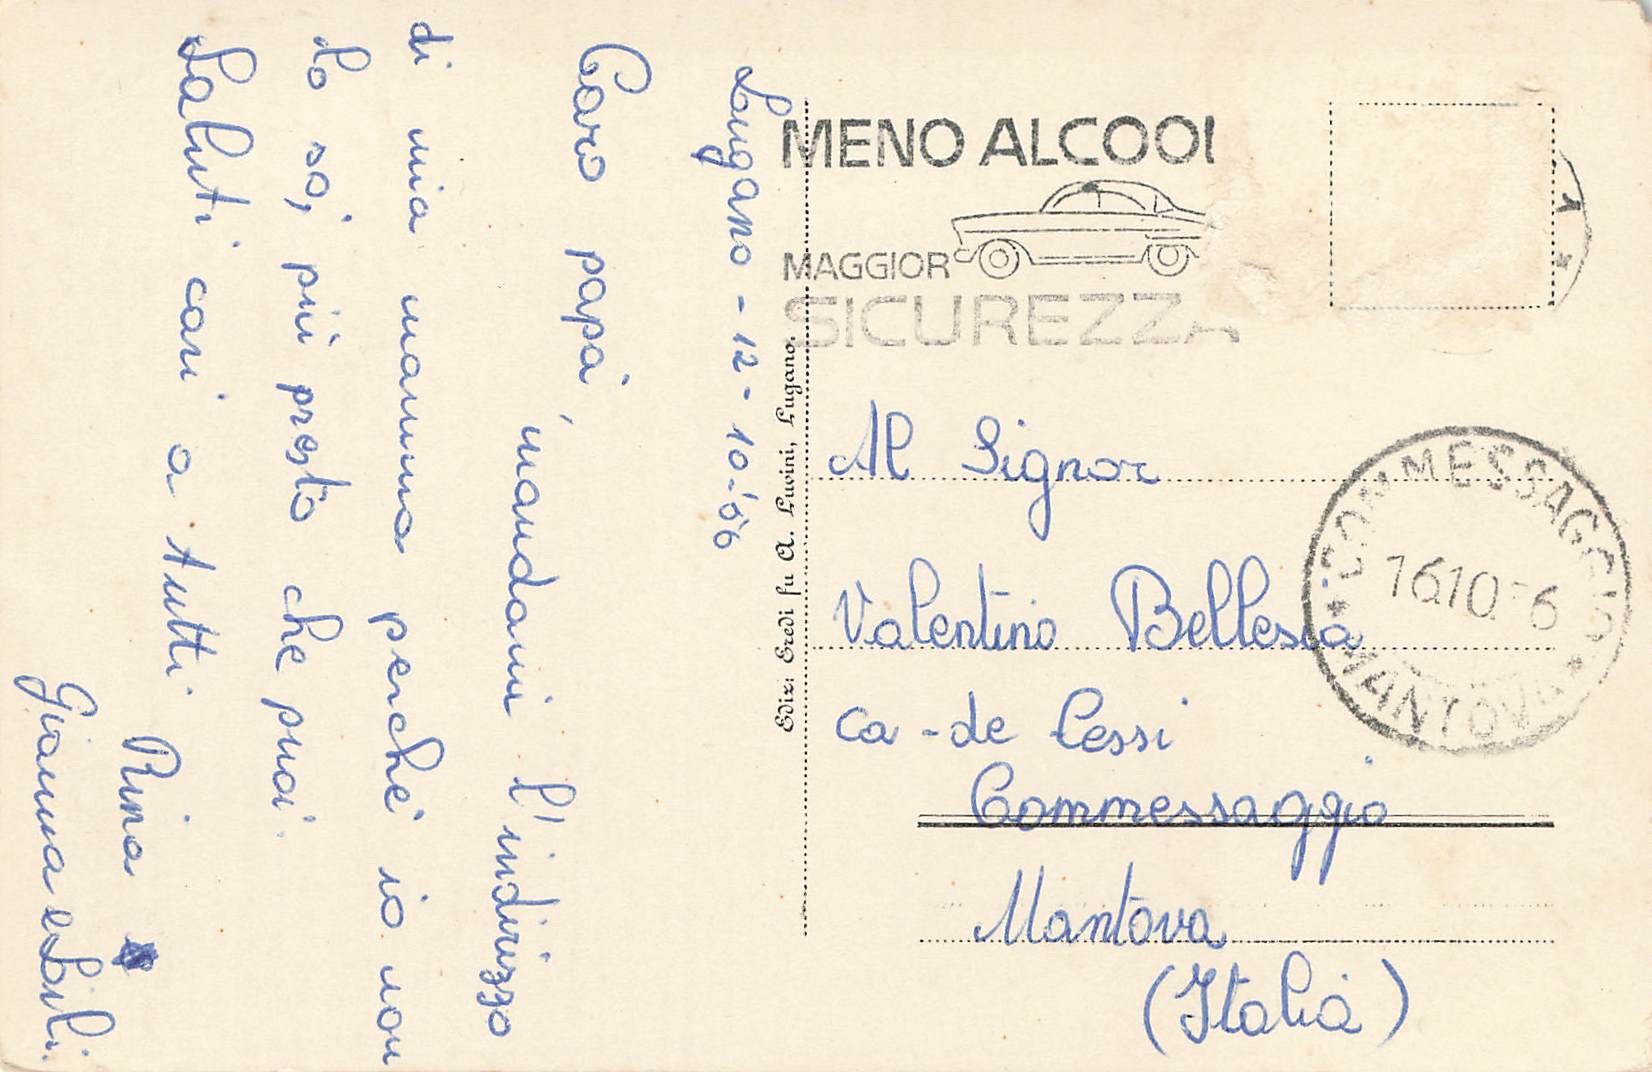 Lugano - 12-10-'56
Caro papà,
mandami l'indirizzo
di mia mamma perché io non
lo so, più presto che puoi.
Saluti cari a tutti
Rina
Gianna e
MENO ALCOOl
MAGGIOR
SICUREZZA
Ediz: Eredi fu A. Luvini, Lugano.
Al Signor
Valentino Bellesia
Ca-de Cessi
Commessaggio
Mantova
(Italia)
COMMESSAGGIO
16.10.
MANTOVA